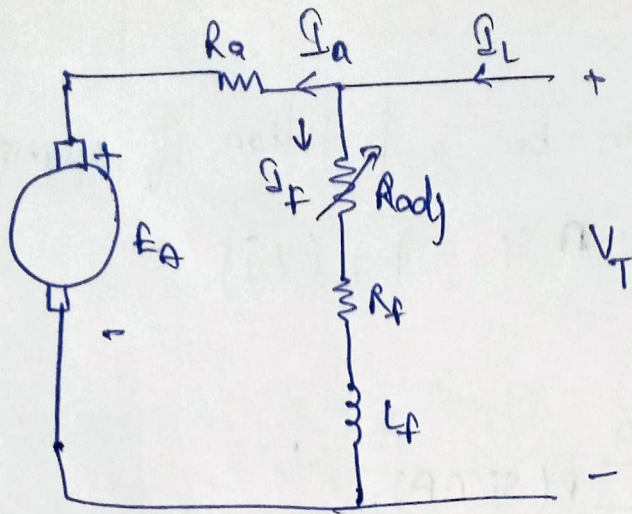 Ra Ia IL
+
+
IF Radj
EA
VT
Rf
-
Lf
-